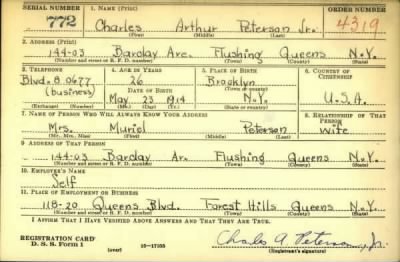 SERIAL NUMBER 1. NAME (Print) ORDER NUMBER
772 Charles Arthur Peterson Jr. 4319
(First) (Middle) (Last)
2. ADDRESS (Print)
144-03 Barclay Ave. Flushing Queens N.Y.
(Number and street or R. F. D. number) (Town) (County) (State)
3. TELEPHONE 4. AGE IN YEARS 5. PLACE OF BIRTH 6. COUNTRY OF CITIZENSHIP
Blvd. 8.0677 26 Brooklyn
(business) DATE OF BIRTH (Town or county)
May 23 1914 N.Y. U.S.A.
(Exchange) (Number) (Mo.) (Day) (Yr.) (State or country)
7. NAME OF PERSON WHO WILL ALWAYS KNOW YOUR ADDRESS 8. RELATIONSHIP OF THAT PERSON
Mrs. Muriel Peterson wife
(Mr., Mrs., Miss) (First) (Middle) (Last)
9. ADDRESS OF THAT PERSON
144-03 Barclay Av. Flushing Queens N.Y.
(Number and street or R. F. D. number) (Town) (County) (State)
10. EMPLOYER'S NAME
Self
11. PLACE OF EMPLOYMENT OR BUSINESS
118-20 Queens Blvd. Forest Hills Queens N.Y.
(Number and street or R. F. D. number) (Town) (County) (State)
I AFFIRM THAT I HAVE VERIFIED ABOVE ANSWERS AND THAT THEY ARE TRUE.
REGISTRATION CARD
D. S. S. Form 1 (over) 16-17105 Charles A Peterson, Jr.
(Registrant's signature)